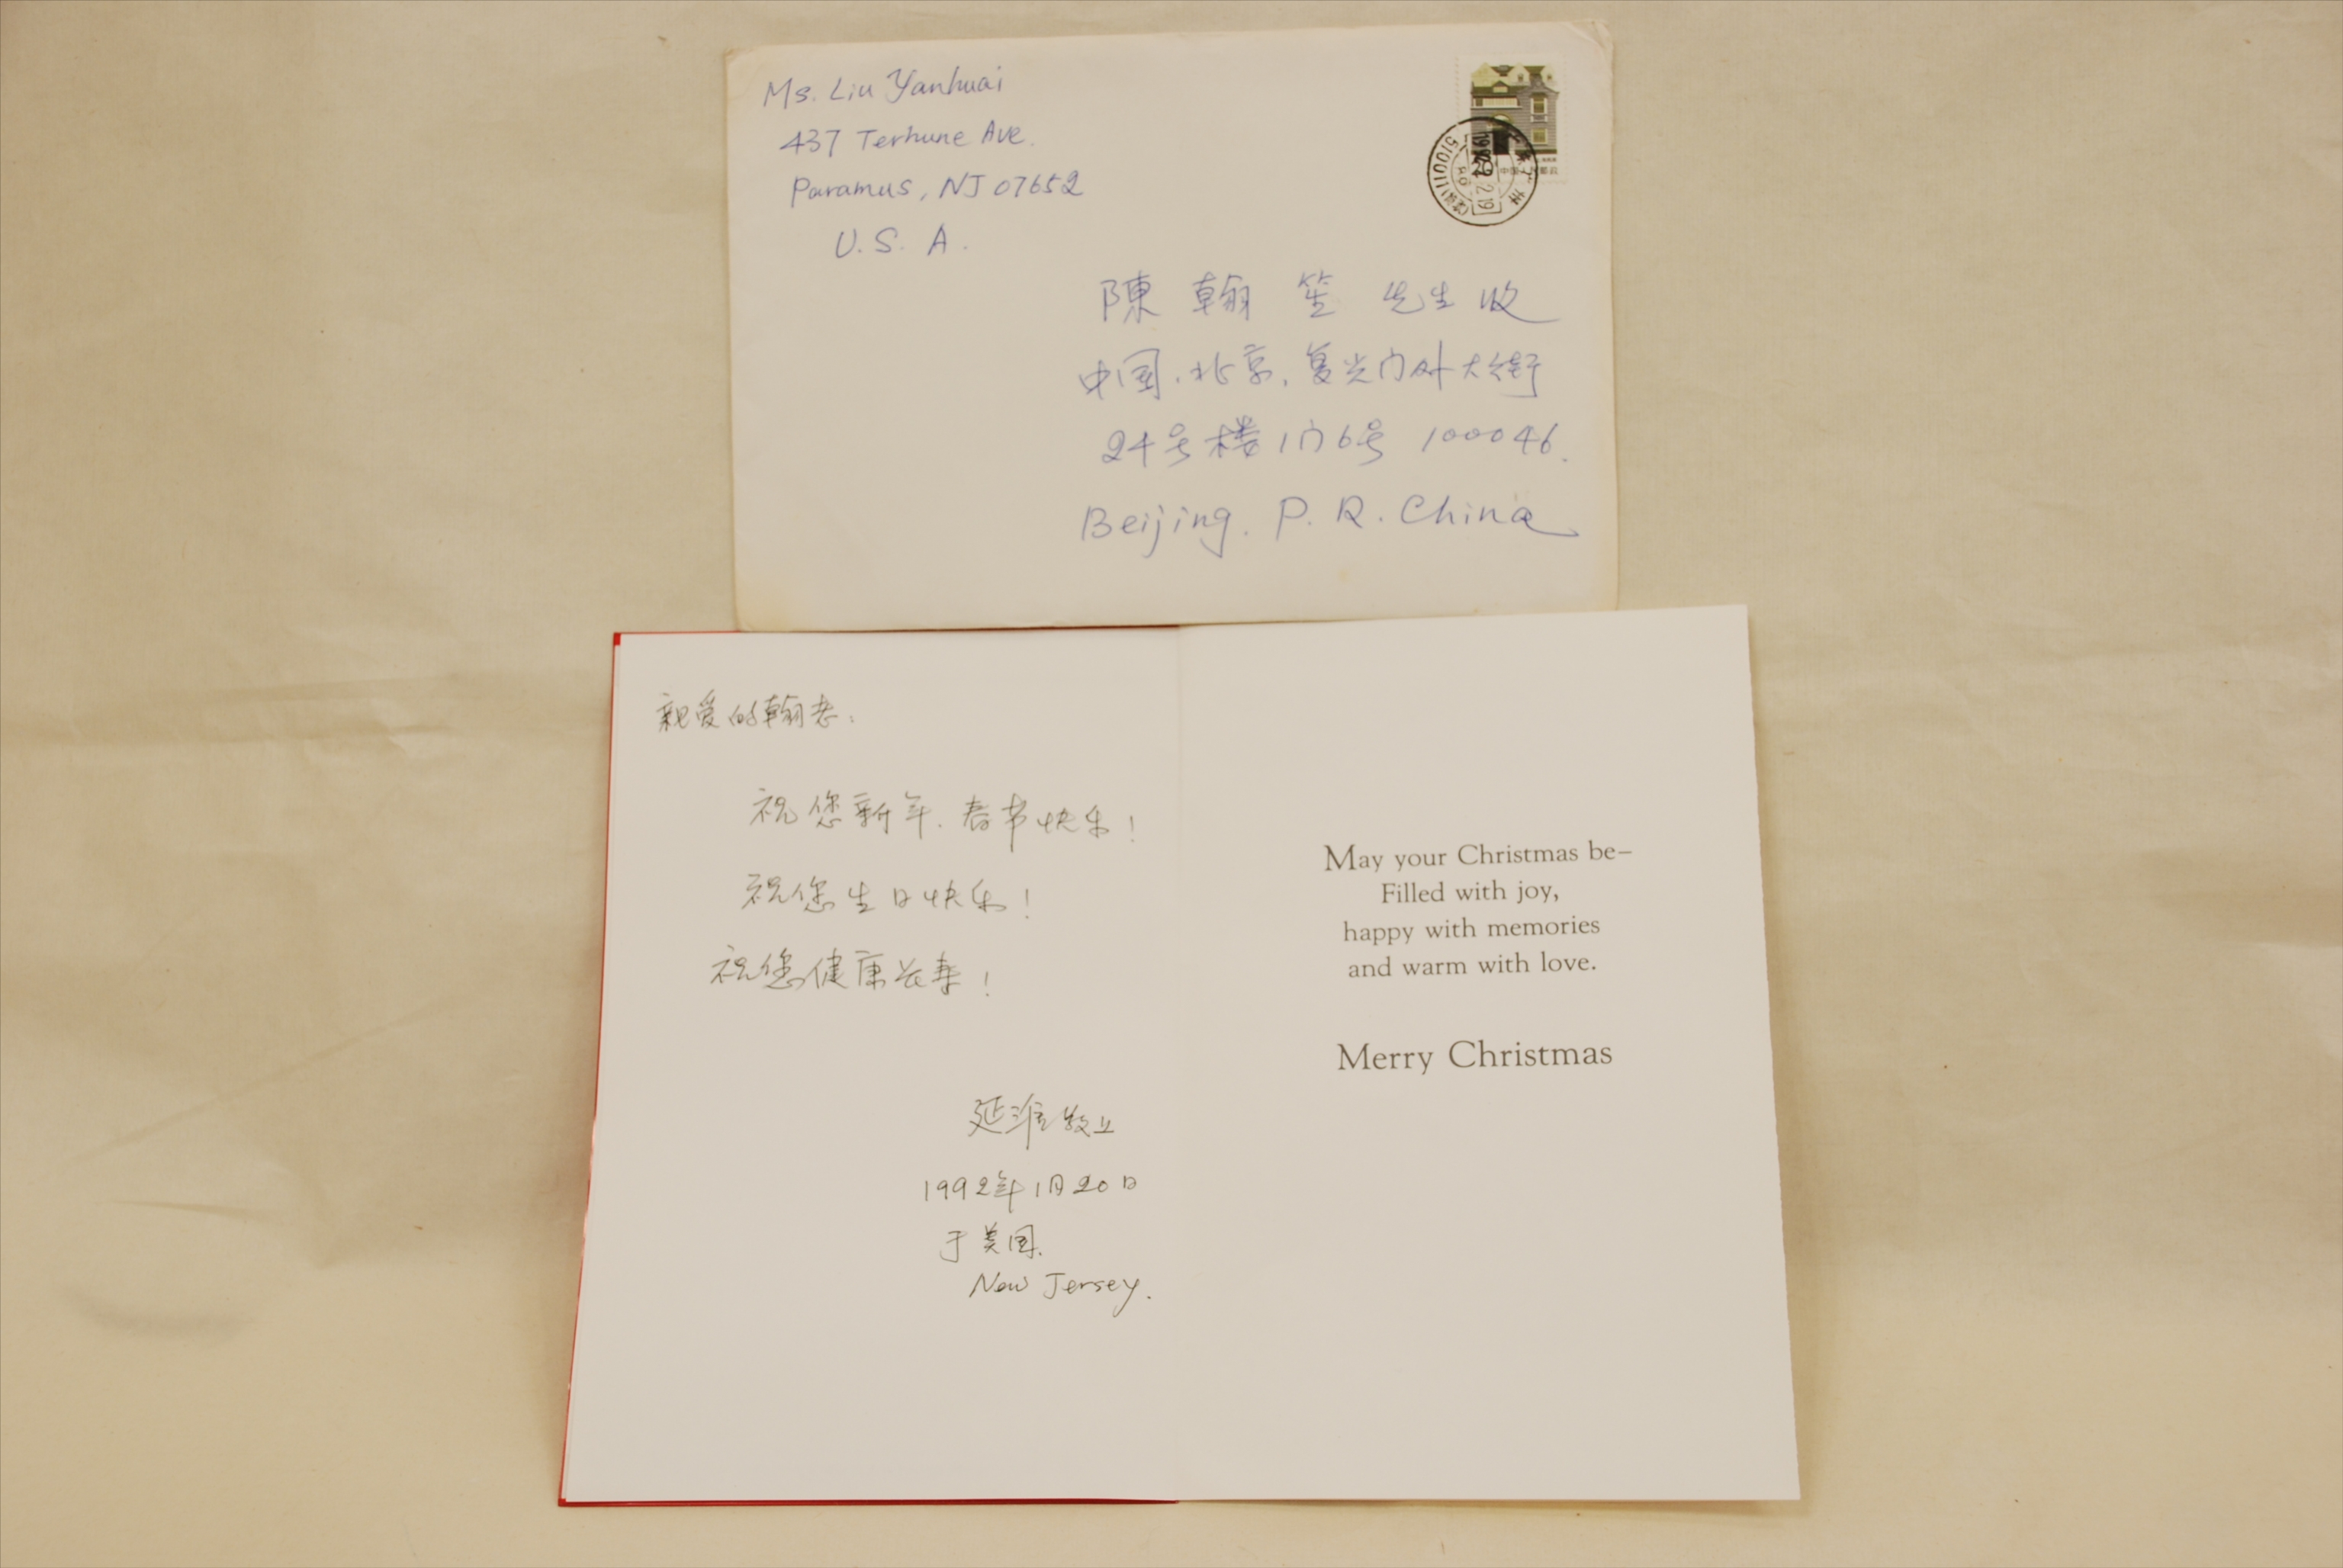 Ms. Liu Yanhuai
437 Terhune Ave.
Paramus, NJ 07652
U. S. A.
中国 邮政
510011
陳 翰 笙 先生 收
中国.北京.复兴门外大街
24号楼1门6号 100046.
Beijing. P. R. China
親爱的翰老:
祝您新年.春节快乐!
祝您生日快乐!
祝您健康长寿!
延淮敬上
1992年1月20日
于美国.
New Jersey.
May your Christmas be–
Filled with joy,
happy with memories
and warm with love.
Merry Christmas